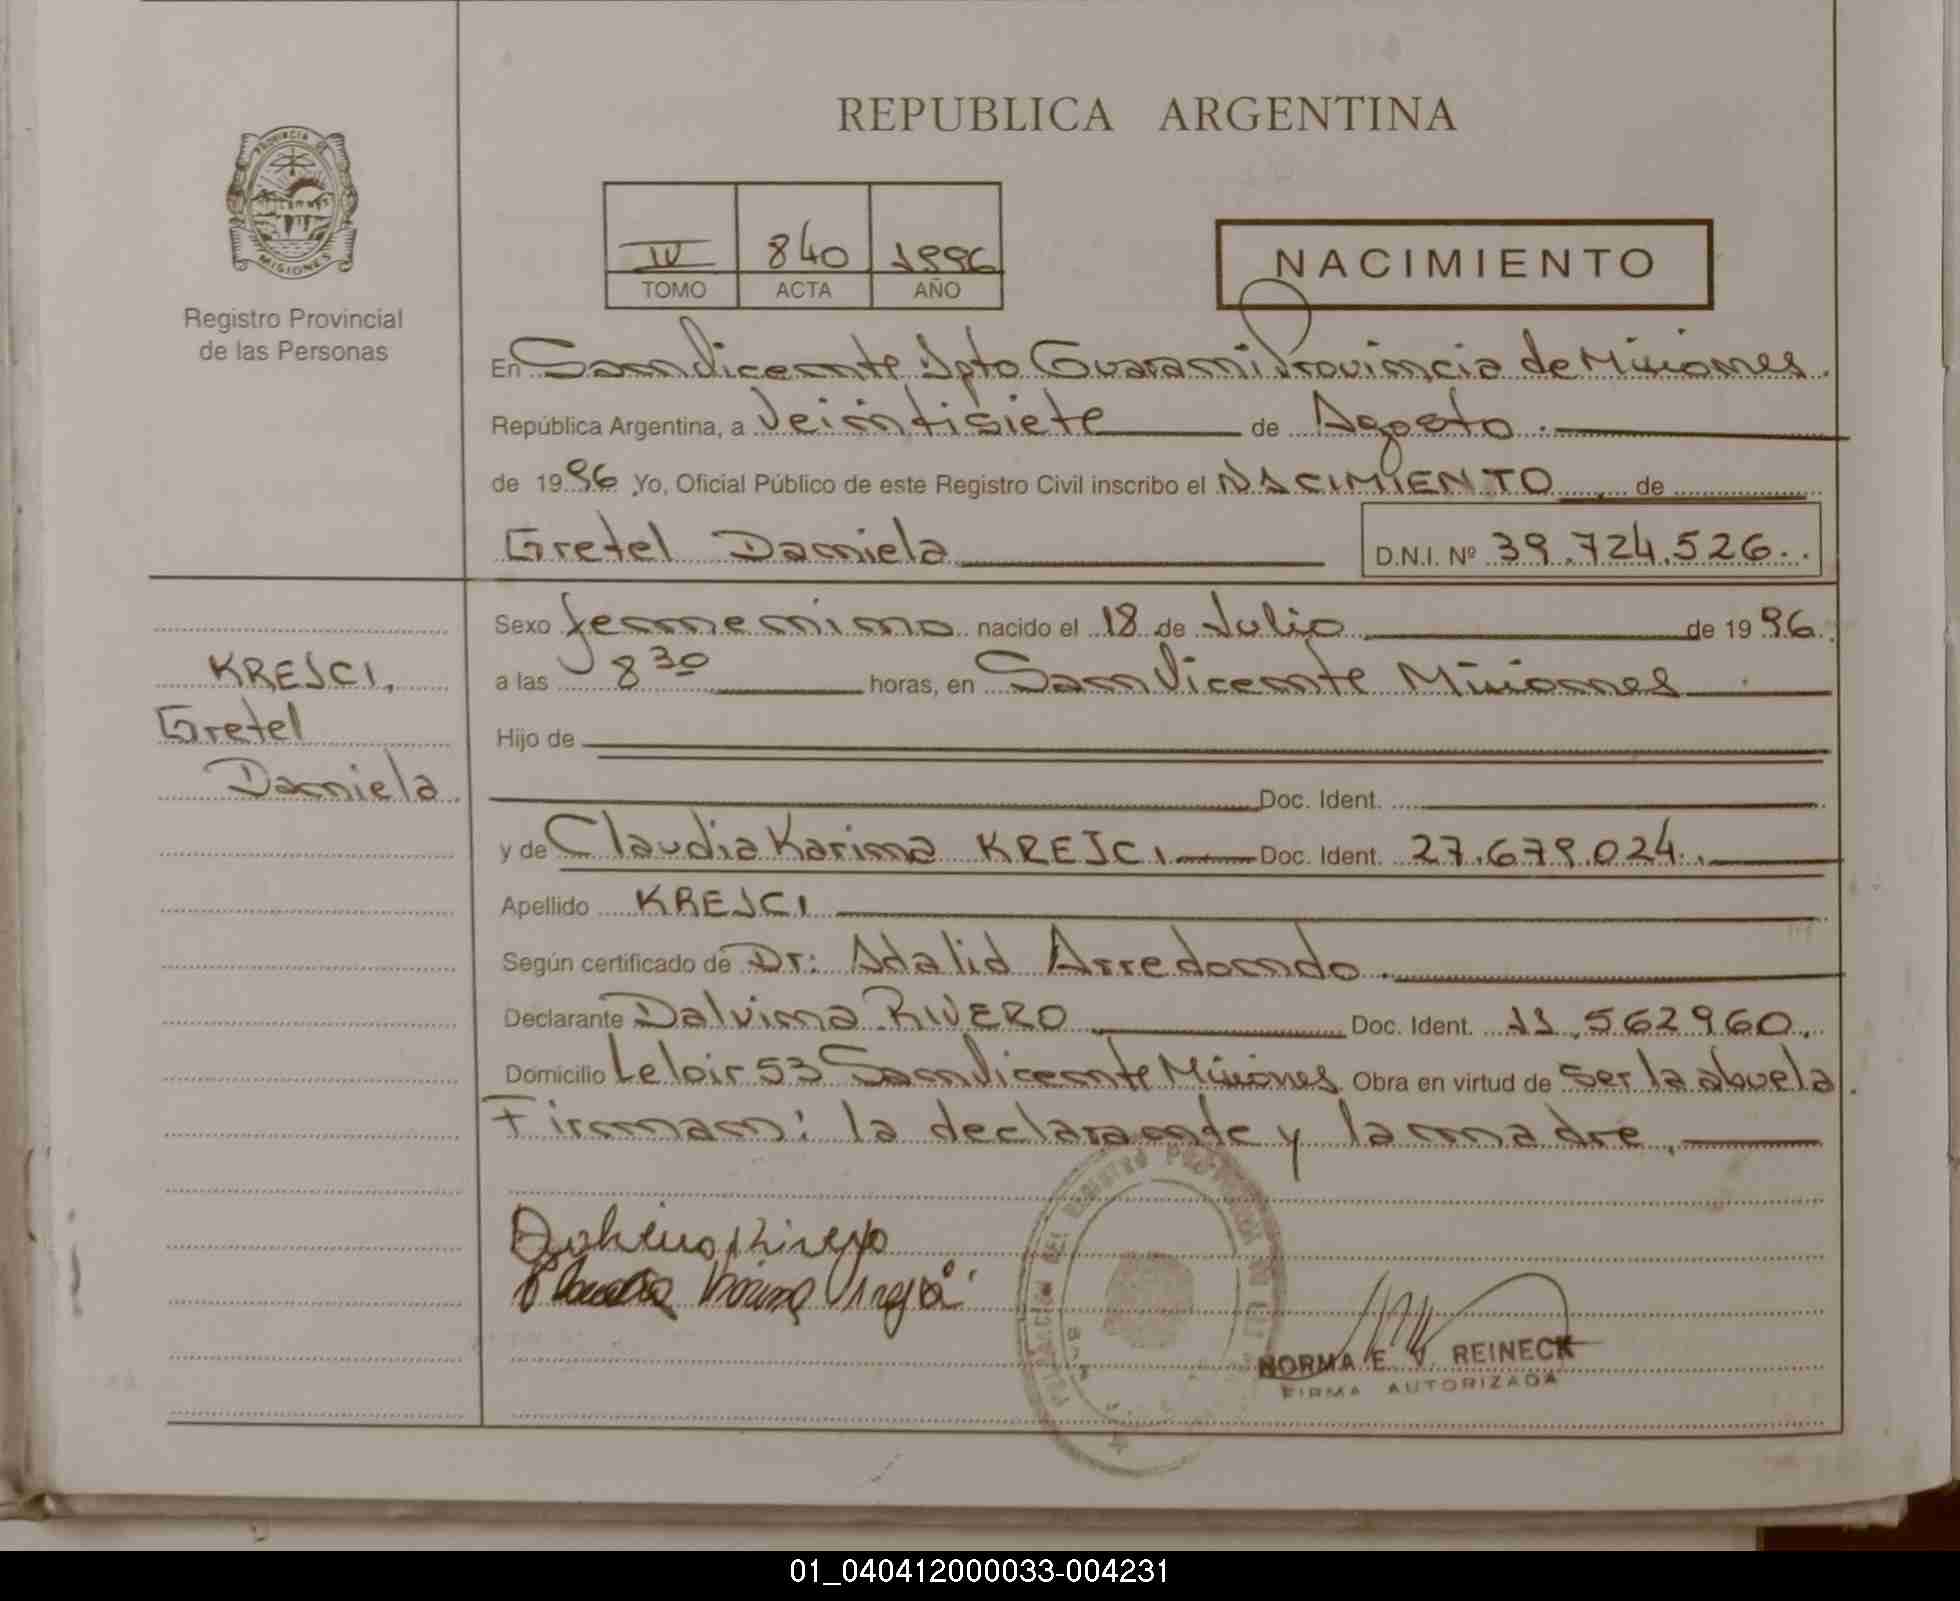 REPUBLICA ARGENTINA
PROVINCIA DE
MISIONES
Registro Provincial
de las Personas
IV 840 1996
TOMO ACTA AÑO
NACIMIENTO
En San Vicente Dpto Guarani Provincia de Misiones.
República Argentina, a Veintisiete de Agosto.
de 1996 Yo, Oficial Público de este Registro Civil inscribo el NACIMIENTO de
Gretel Daniela D.N.I. Nº 39.724.526..
Sexo femenino nacido el 18 de Julio de 1996.
a las 8 30 horas, en San Vicente Misiones
Hijo de
Doc. Ident.
y de Claudia Karina KREJCI Doc. Ident. 27.679.024.
Apellido KREJCI
Según certificado de Dr: Adalid Arredondo.
Declarante Dalvina RIVERO Doc. Ident. 11.562960.
Domicilio Leloir 53 San Vicente Misiones Obra en virtud de ser la abuela.
Firman: la declarante y la madre.
KREJCI,
Gretel
Daniela.
NORMA E. V. REINECK
FIRMA AUTORIZADA
01_040412000033-004231